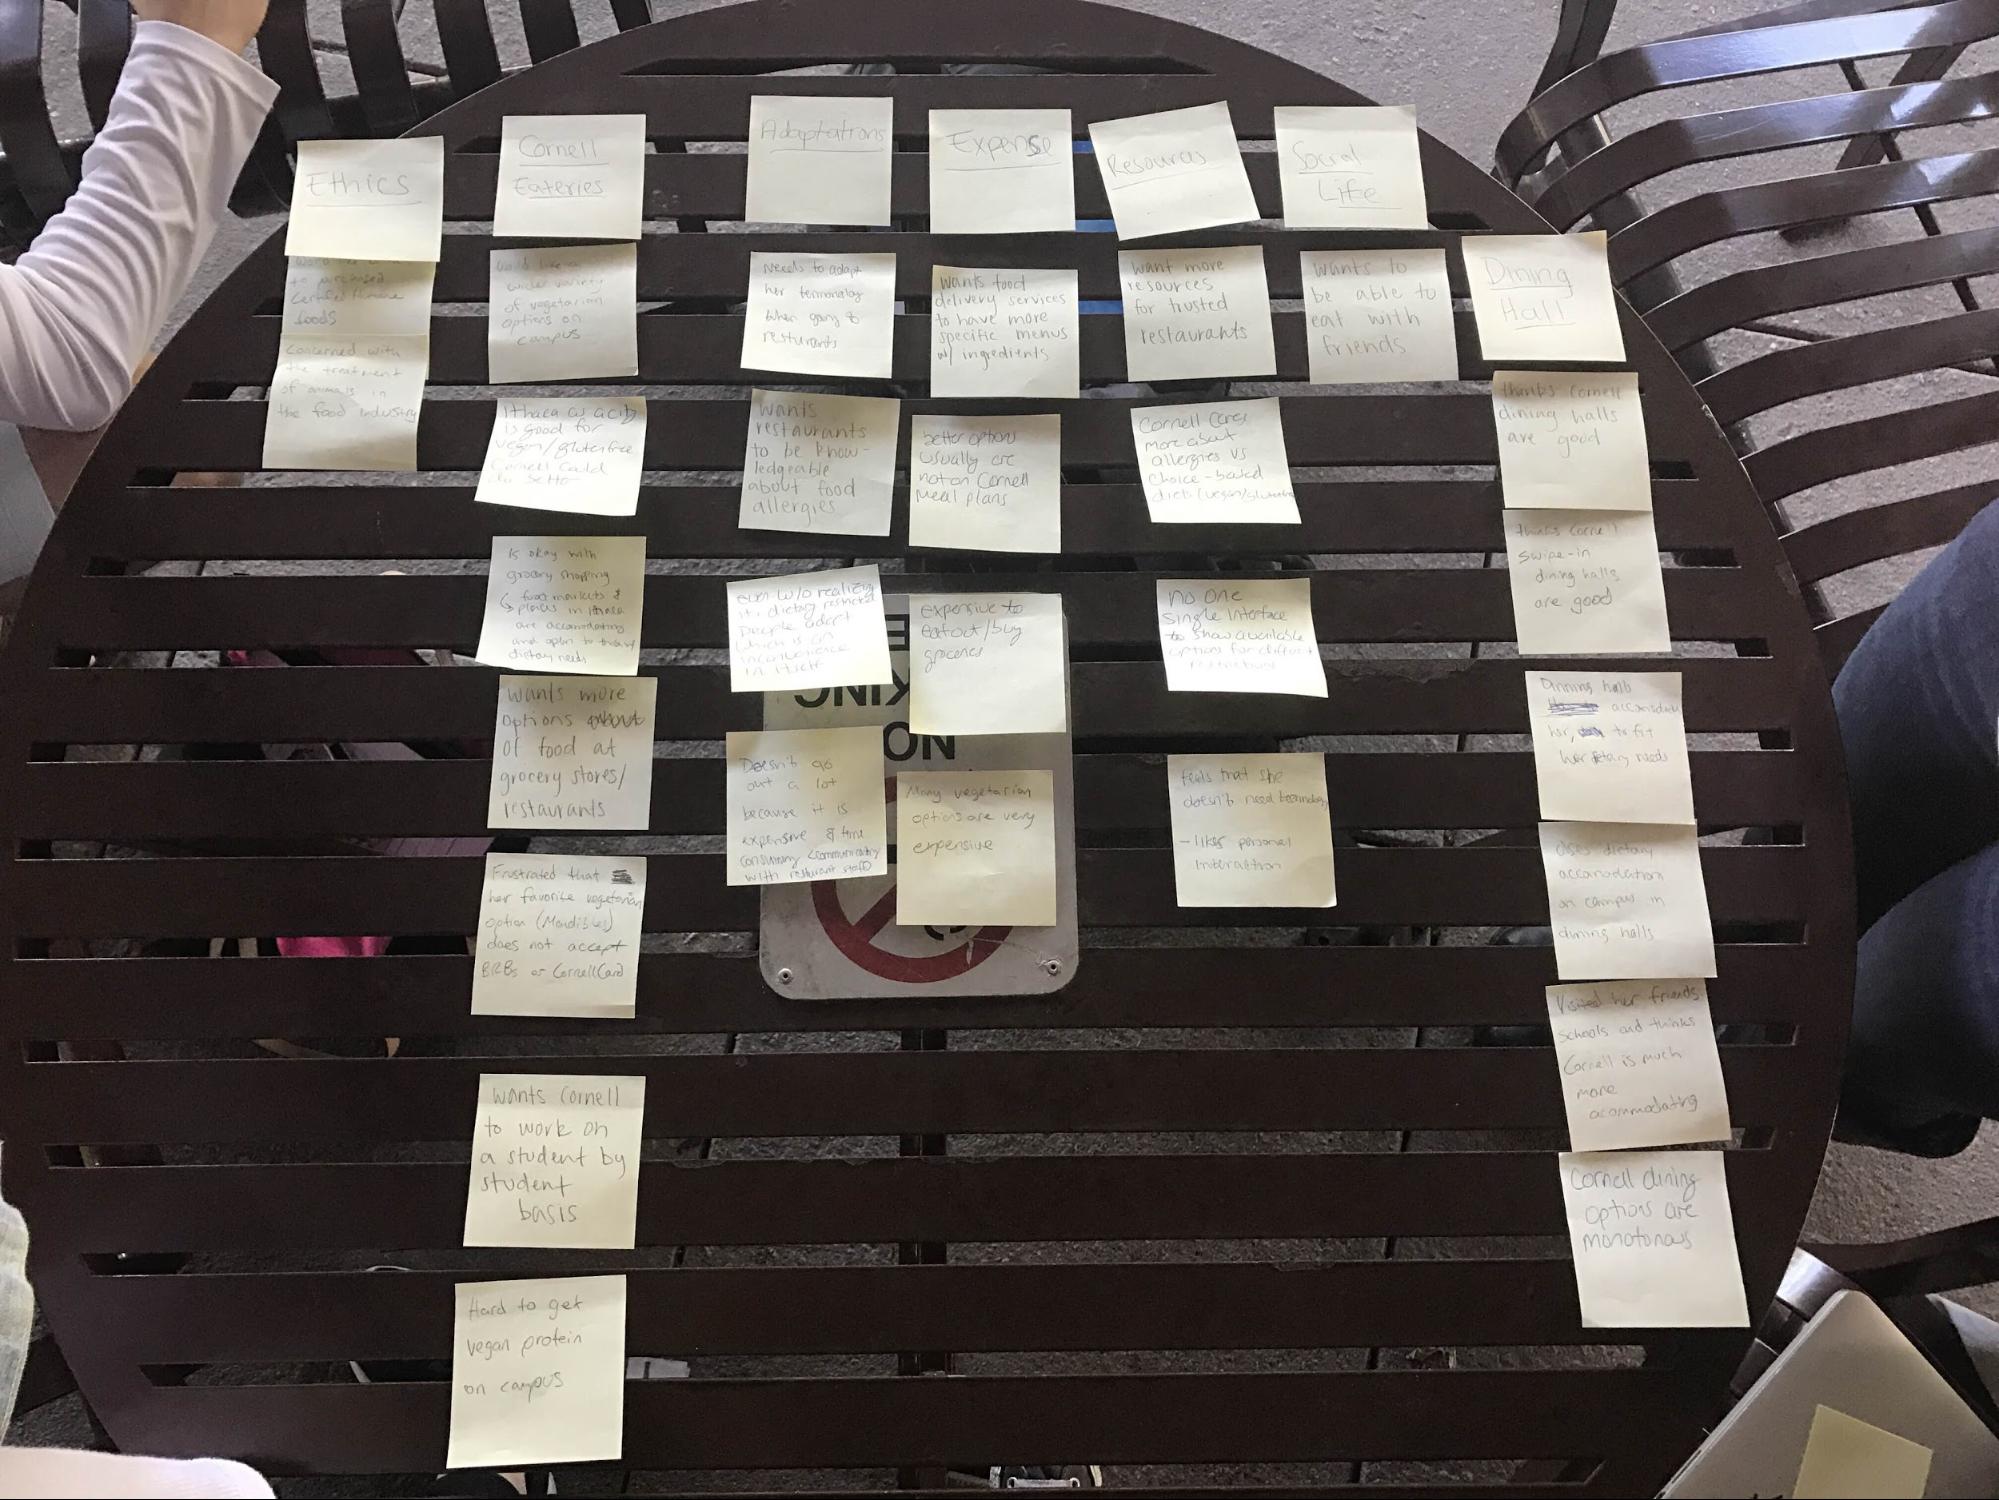 Ethics
to purchased
certified humane
foods
Concerned with
the treatment
of animals in
the food industry
Cornell
Eateries
would like a
wider variety
of vegetarian
options on
campus
Ithaca as a city
is good for
vegan/gluten free
Cornell could
do better
is okay with
grocery shopping
↳ food markets &
places in Ithaca
are accomodating
and open to
dietary needs
wants more
options
of food at
grocery stores/
restaurants
Frustrated that
her favorite vegetarian
option (Mandibles)
does not accept
BRBs or CornellCard
wants Cornell
to work on
a student by
student
basis
Hard to get
vegan protein
on campus
Adaptations
Needs to adapt
her terminology
when going to
resturants
wants
restaurants
to be know-
ledgeable
about food
allergies
even w/o realizing
it's dietary restricted
people adapt
which is an
inconvenience
in itself
Doesn't go
out a lot
because it is
expensive & time
consuming communicating
with resturant staff
Expense
Wants food
delivery services
to have more
specific menus
w/ ingredients
better options
usually are
not on Cornell
meal plans
expensive to
eat out/buy
groceries
Many vegetarian
options are very
expensive
Resources
want more
resources
for trusted
restaurants
Cornell Cares
more about
allergies vs
choice-based
diets (vegan/
no one
single interface
to show available
options for different
feels that she
doesn't need technology
- likes personal
interaction
Social
Life
wants to
be able to
eat with
friends
Dining
Hall
thinks Cornell
dining halls
are good
thinks Cornell
swipe-in
dining halls
are good
her, to fit
her dietary needs
Uses dietary
accomodation
on campus in
dining halls
Visited her friends
schools and thinks
Cornell is much
more
accommodating
Cornell dining
options are
monotonous
NO